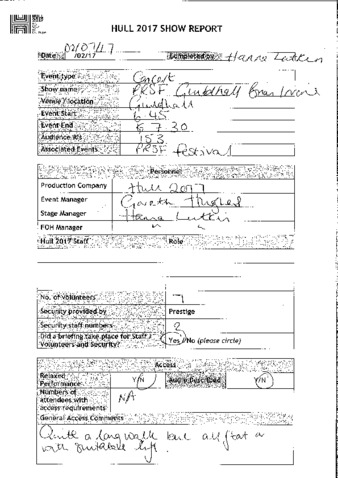 HULL 2017 SHOW REPORT
02/07/17
Date /02/17 Completed by Hanna Lutkin
Event type Concert
Show name PRSF Guildhall Brass
Venue / location Guildhall
Event Start 6.45
Event End 7.30
Audience No 153
Associated Events PRSF festival
Personnel
Production Company Hull 2017
Event Manager Gareth Hughes
Stage Manager Hanna Lutkin
FOH Manager " "
Hull 2017 Staff Role
No. of Volunteers 7
Security provided by Prestige
Security staff numbers 2
Did a briefing take place for Staff / Yes / No (please circle)
Volunteers and Security?
Access
Relaxed Performance Y/N Audio Described Y/N
Numbers of attendees with access requirements N/A
General Access Comments
Quite a long walk but all flat or
with suitable lift.